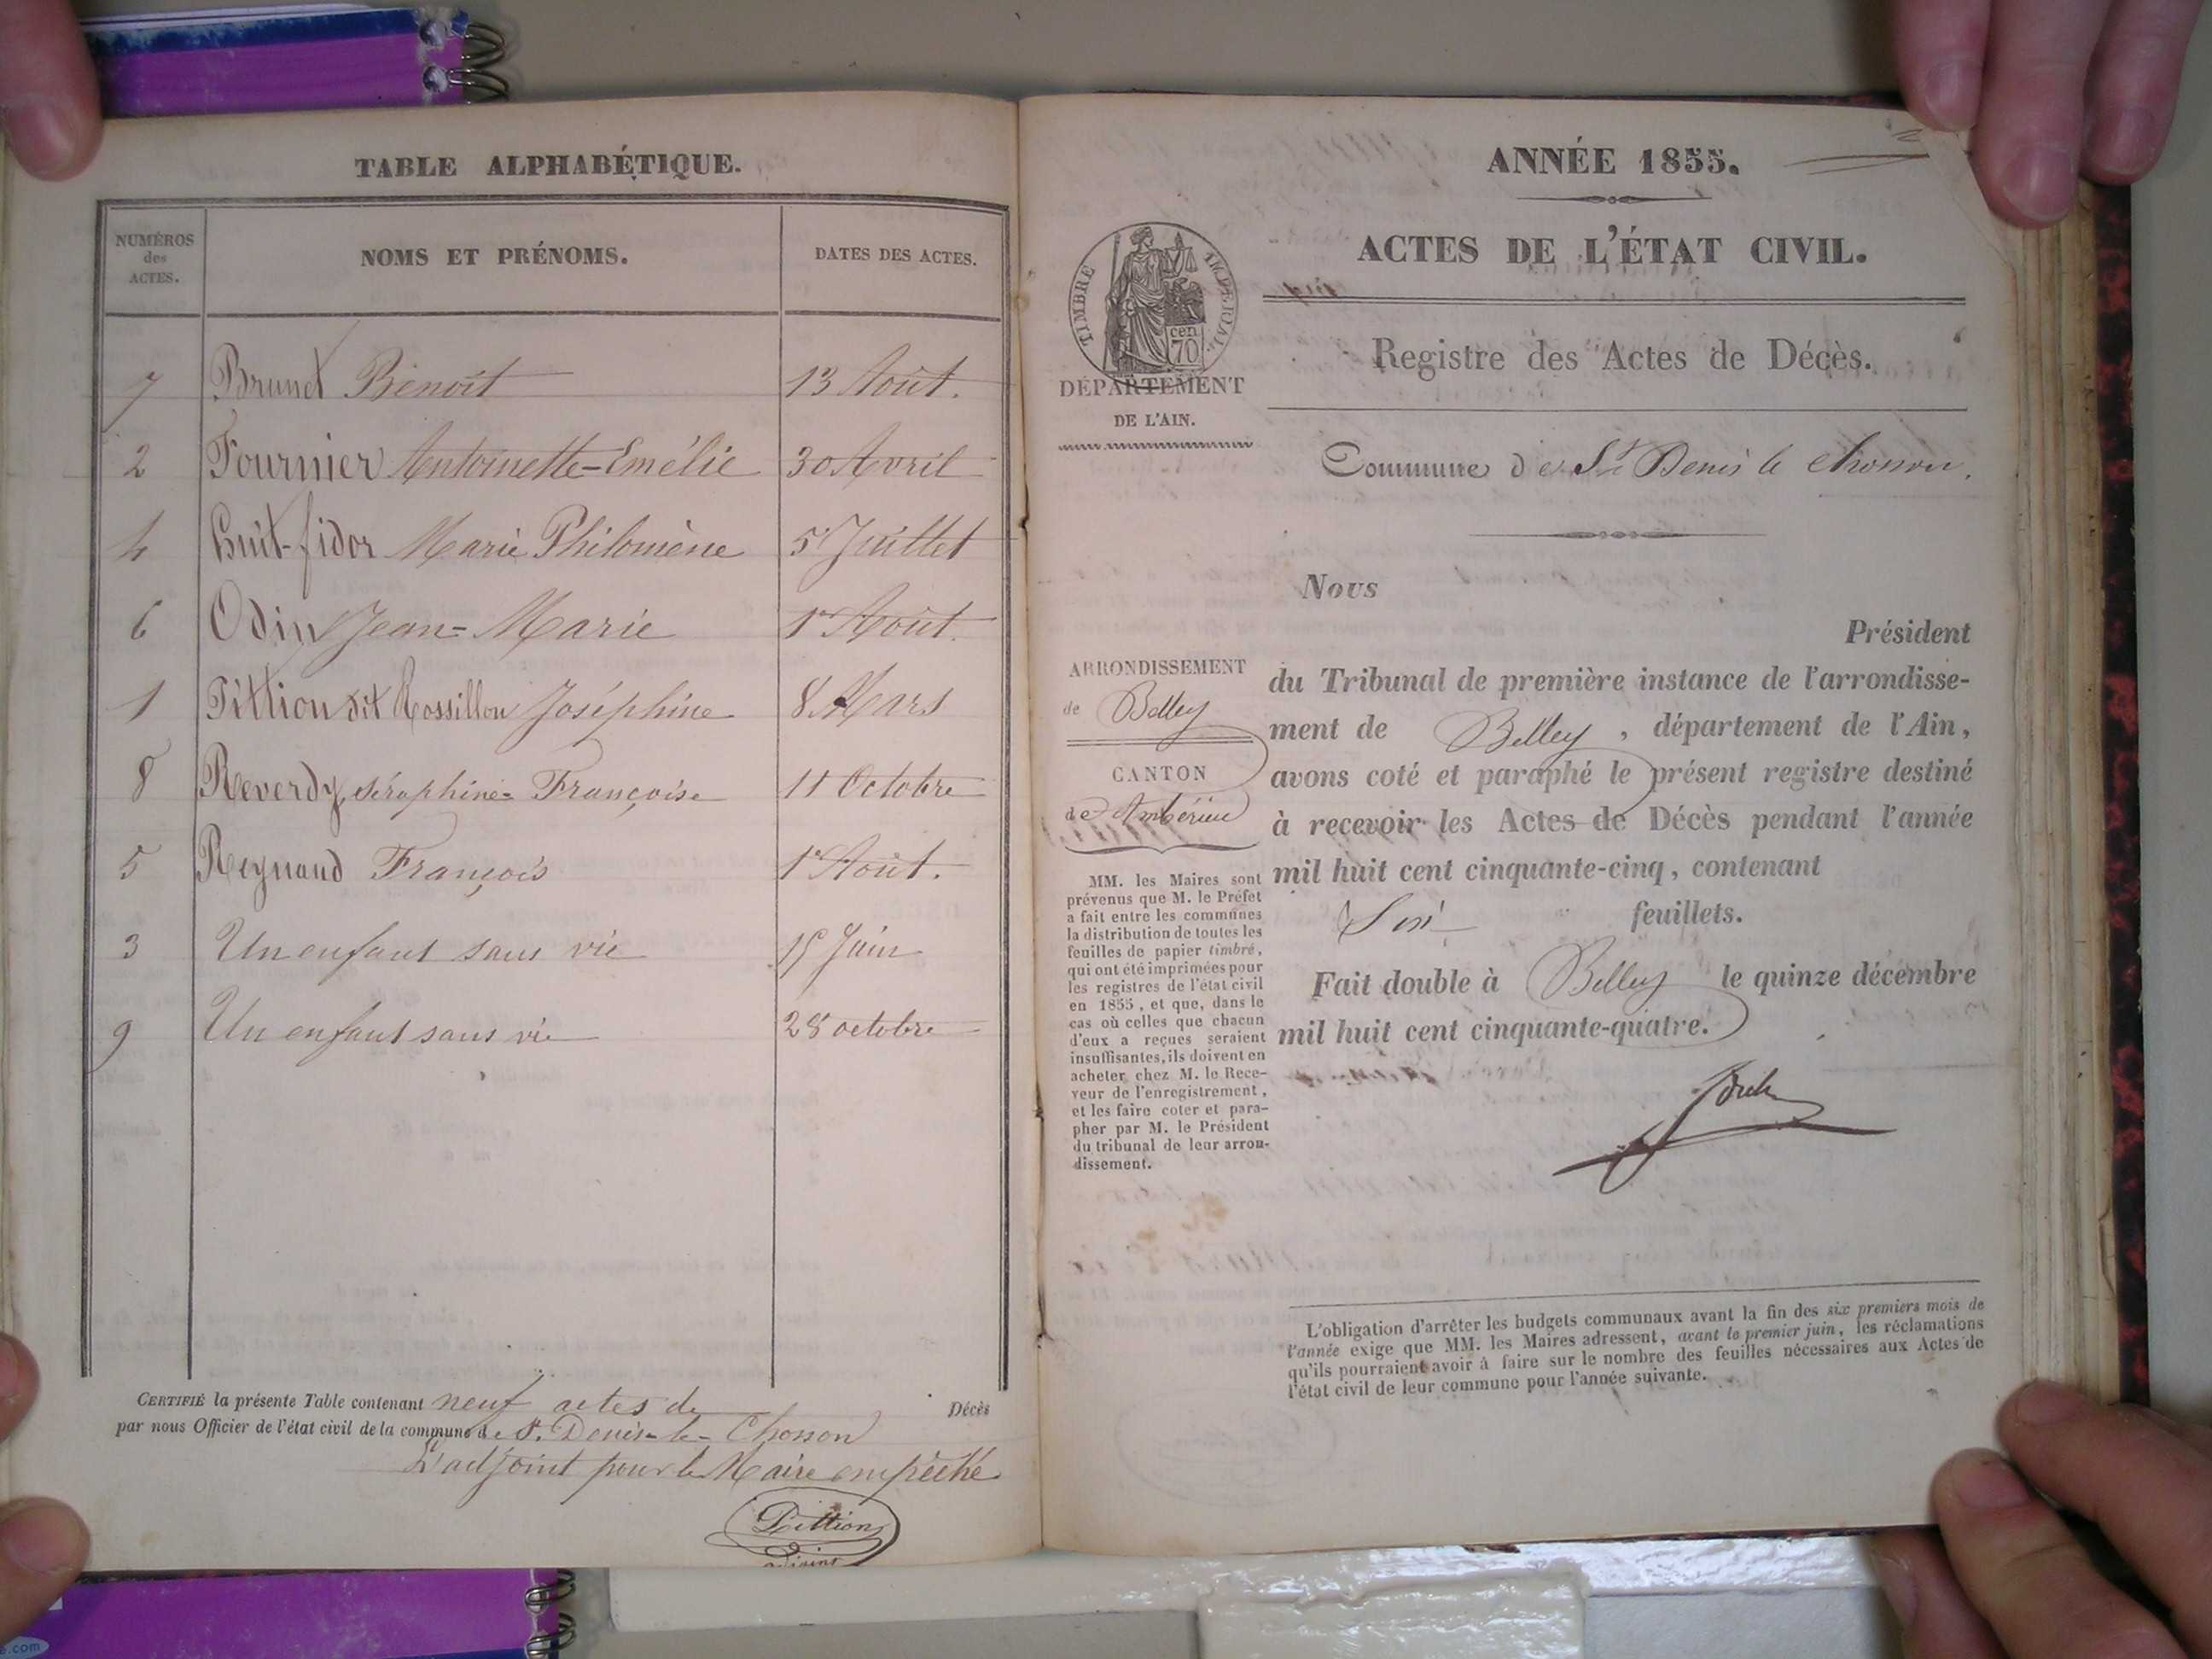 TABLE ALPHABÉTIQUE.
NUMÉROS des ACTES. NOMS ET PRÉNOMS. DATES DES ACTES.
7 Brunet Benoît 13 Août.
2 Fournier Antoinette-Emélie 30 Avril
4 Huit-fidor Marie Philomène 5 Juillet
6 Odin Jean-Marie 1er Août.
1 Pittion dit Rossillon Joséphine 8 Mars
8 Reverdy, Séraphine-Françoise 11 Octobre
5 Reynaud François 1er Août.
3 Un enfant sans vie 15 Juin
9 Un enfant sans vie 28 octobre
CERTIFIÉ la présente Table contenant neuf actes de Décès
par nous Officier de l'état civil de la commune de St. Denis-le-Chosson
L'adjoint pour le Maire empêché
Pittion
adjoint
ANNÉE 1855.
ACTES DE L'ÉTAT CIVIL.
TIMBRE IMPÉRIAL
70 cen
Registre des Actes de Décès.
DÉPARTEMENT
DE L'AIN.
Commune de St Denis le Chosson.
Nous
Président
du Tribunal de première instance de l'arrondisse-
ment de Belley, département de l'Ain,
avons coté et paraphé le présent registre destiné
à recevoir les Actes de Décès pendant l'année
mil huit cent cinquante-cinq, contenant
Six feuillets.
Fait double à Belley le quinze décembre
mil huit cent cinquante-quatre.
ARRONDISSEMENT
de Belley
CANTON
de Ambérieu
MM. les Maires sont
prévenus que M. le Préfet
a fait entre les communes
la distribution de toutes les
feuilles de papier timbré,
qui ont été imprimées pour
les registres de l'état civil
en 1855, et que, dans le
cas où celles que chacun
d'eux a reçues seraient
insuffisantes, ils doivent en
acheter chez M. le Rece-
veur de l'enregistrement,
et les faire coter et para-
pher par M. le Président
du tribunal de leur arron-
dissement.
L'obligation d'arrêter les budgets communaux avant la fin des six premiers mois de
l'année exige que MM. les Maires adressent, avant le premier juin, les réclamations
qu'ils pourraient avoir à faire sur le nombre des feuilles nécessaires aux Actes de
l'état civil de leur commune pour l'année suivante.
e.com